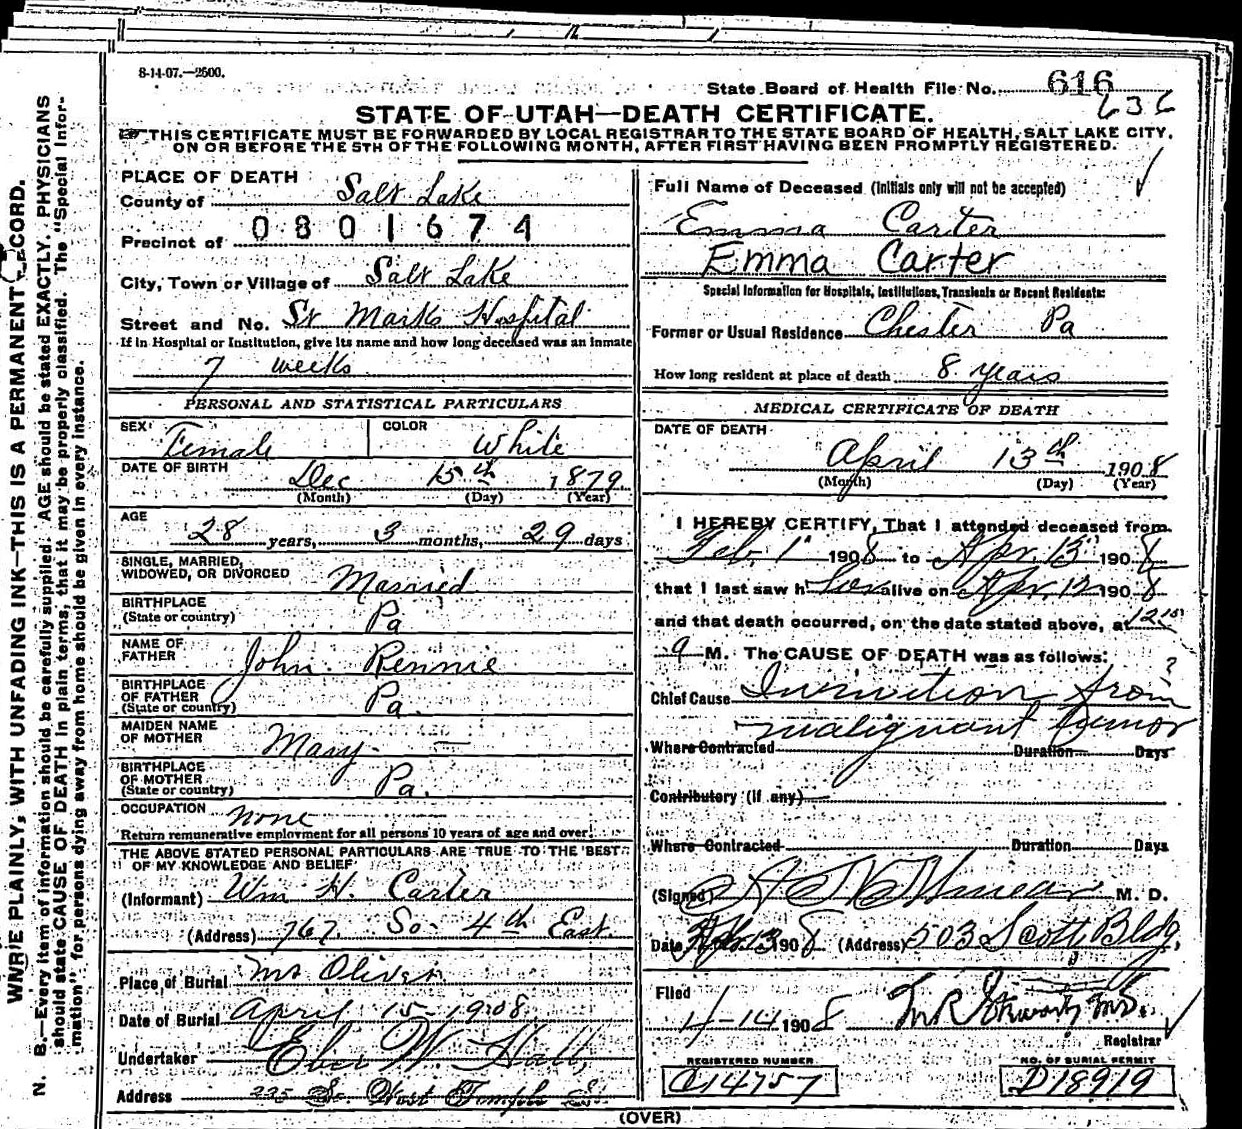 8-14-07.—2500.
State Board of Health File No. 616
636
STATE OF UTAH—DEATH CERTIFICATE.
THIS CERTIFICATE MUST BE FORWARDED BY LOCAL REGISTRAR TO THE STATE BOARD OF HEALTH, SALT LAKE CITY,
ON OR BEFORE THE 5TH OF THE FOLLOWING MONTH, AFTER FIRST HAVING BEEN PROMPTLY REGISTERED.
WRITE PLAINLY, WITH UNFADING INK—THIS IS A PERMANENT RECORD.
N. B.—Every item of information should be carefully supplied. AGE should be stated EXACTLY. PHYSICIANS
should state CAUSE OF DEATH in plain terms, that it may be properly classified. The "Special Infor-
mation" for persons dying away from home should be given in every instance.
PLACE OF DEATH
County of Salt Lake
Precinct of 0801674
City, Town or Village of Salt Lake
Street and No. St Marks Hospital
If in Hospital or Institution, give its name and how long deceased was an inmate
7 weeks
PERSONAL AND STATISTICAL PARTICULARS
SEX Female COLOR White
DATE OF BIRTH Dec 15th 1879
(Month) (Day) (Year)
AGE
28 years, 3 months, 29 days
SINGLE, MARRIED,
WIDOWED, OR DIVORCED Married
BIRTHPLACE
(State or country) Pa
NAME OF
FATHER John Rennie
BIRTHPLACE
OF FATHER
(State or country) Pa.
MAIDEN NAME
OF MOTHER Mary —
BIRTHPLACE
OF MOTHER
(State or country) Pa.
OCCUPATION none
Return remunerative employment for all persons 10 years of age and over.
THE ABOVE STATED PERSONAL PARTICULARS ARE TRUE TO THE BEST
OF MY KNOWLEDGE AND BELIEF
(Informant) Wm H. Carter
(Address) 767 So 4th East
Place of Burial Mt Olivet
Date of Burial April 15-1908
Undertaker Eber W. Hall
Address 235 So. West Temple St.
Full Name of Deceased (Initials only will not be accepted)
Emma Carter
Emma Carter
Special Information for Hospitals, Institutions, Transients or Recent Residents:
Former or Usual Residence Chester Pa
How long resident at place of death 8 years
MEDICAL CERTIFICATE OF DEATH
DATE OF DEATH
April 13th 1908
(Month) (Day) (Year)
I HEREBY CERTIFY, That I attended deceased from
Feb. 1 1908 to Apr. 13 1908
that I last saw her alive on Apr. 12 1908
and that death occurred, on the date stated above, at 12 15
a M. The CAUSE OF DEATH was as follows:
Chief Cause Inanition from ?
malignant tumor
Where Contracted Duration Days
Contributory (if any)
Where Contracted Duration Days
(Signed) M. D.
Date Apr. 13 1908 (Address) 503 Scott Bldg,
Filed
4-14 1908
Registrar
REGISTERED NUMBER NO. OF BURIAL PERMIT
C14757 D18919
(OVER)